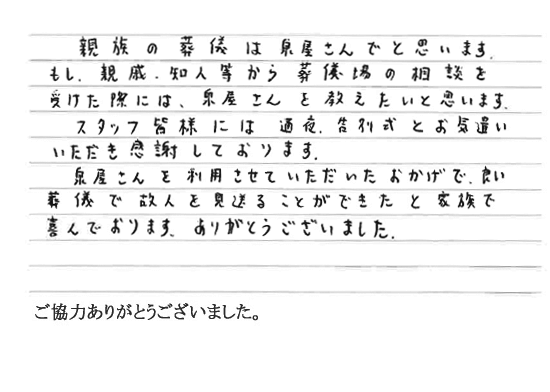 親族の葬儀は泉屋さんでと思います。
もし、親戚・知人等から葬儀場の相談を
受けた際には、泉屋さんを教えたいと思います。
スタッフ皆様には通夜、告別式とお気遣い
いただき感謝しております。
泉屋さんを利用させていただいたおかげで、良い
葬儀で故人を見送ることができたと家族で
喜んでおります。ありがとうございました。
ご協力ありがとうございました。